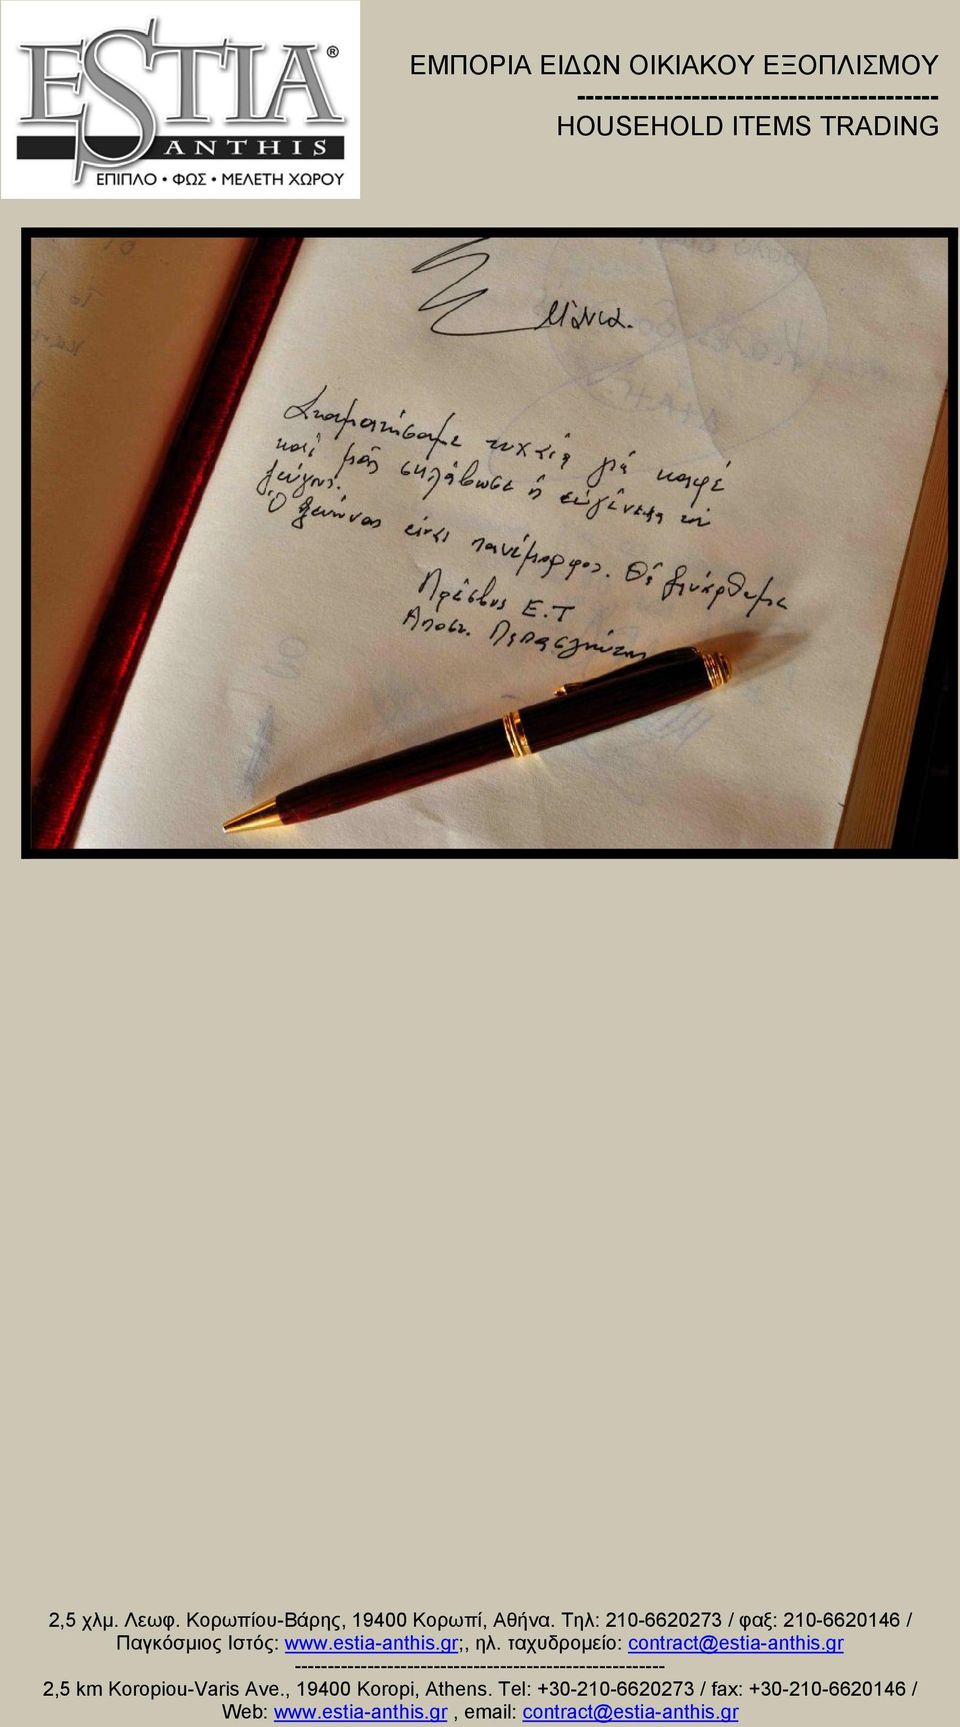 ESTIA®
ANTHIS
ΕΠΙΠΛΟ • ΦΩΣ • ΜΕΛΕΤΗ ΧΩΡΟΥ
ΕΜΠΟΡΙΑ ΕΙΔΩΝ ΟΙΚΙΑΚΟΥ ΕΞΟΠΛΙΣΜΟΥ
-----------------------------------------
HOUSEHOLD ITEMS TRADING
Μάνια.
Σταματήσαμε τυχαία γιά καφέ
καί μᾶς σκλάβωσε ἡ εὐγένεια τοῦ
ζεύγους.
Ὁ ξενώνας είναι πανέμορφος. Θά ξανάρθουμε
Πρέσβυς Ε.Τ
Αποστ.
2,5 χλμ. Λεωφ. Κορωπίου-Βάρης, 19400 Κορωπί, Αθήνα. Τηλ: 210-6620273 / φαξ: 210-6620146 /
Παγκόσμιος Ιστός: www.estia-anthis.gr;, ηλ. ταχυδρομείο: contract@estia-anthis.gr
--------------------------------------------------------
2,5 km Koropiou-Varis Ave., 19400 Koropi, Athens. Tel: +30-210-6620273 / fax: +30-210-6620146 /
Web: www.estia-anthis.gr , email: contract@estia-anthis.gr